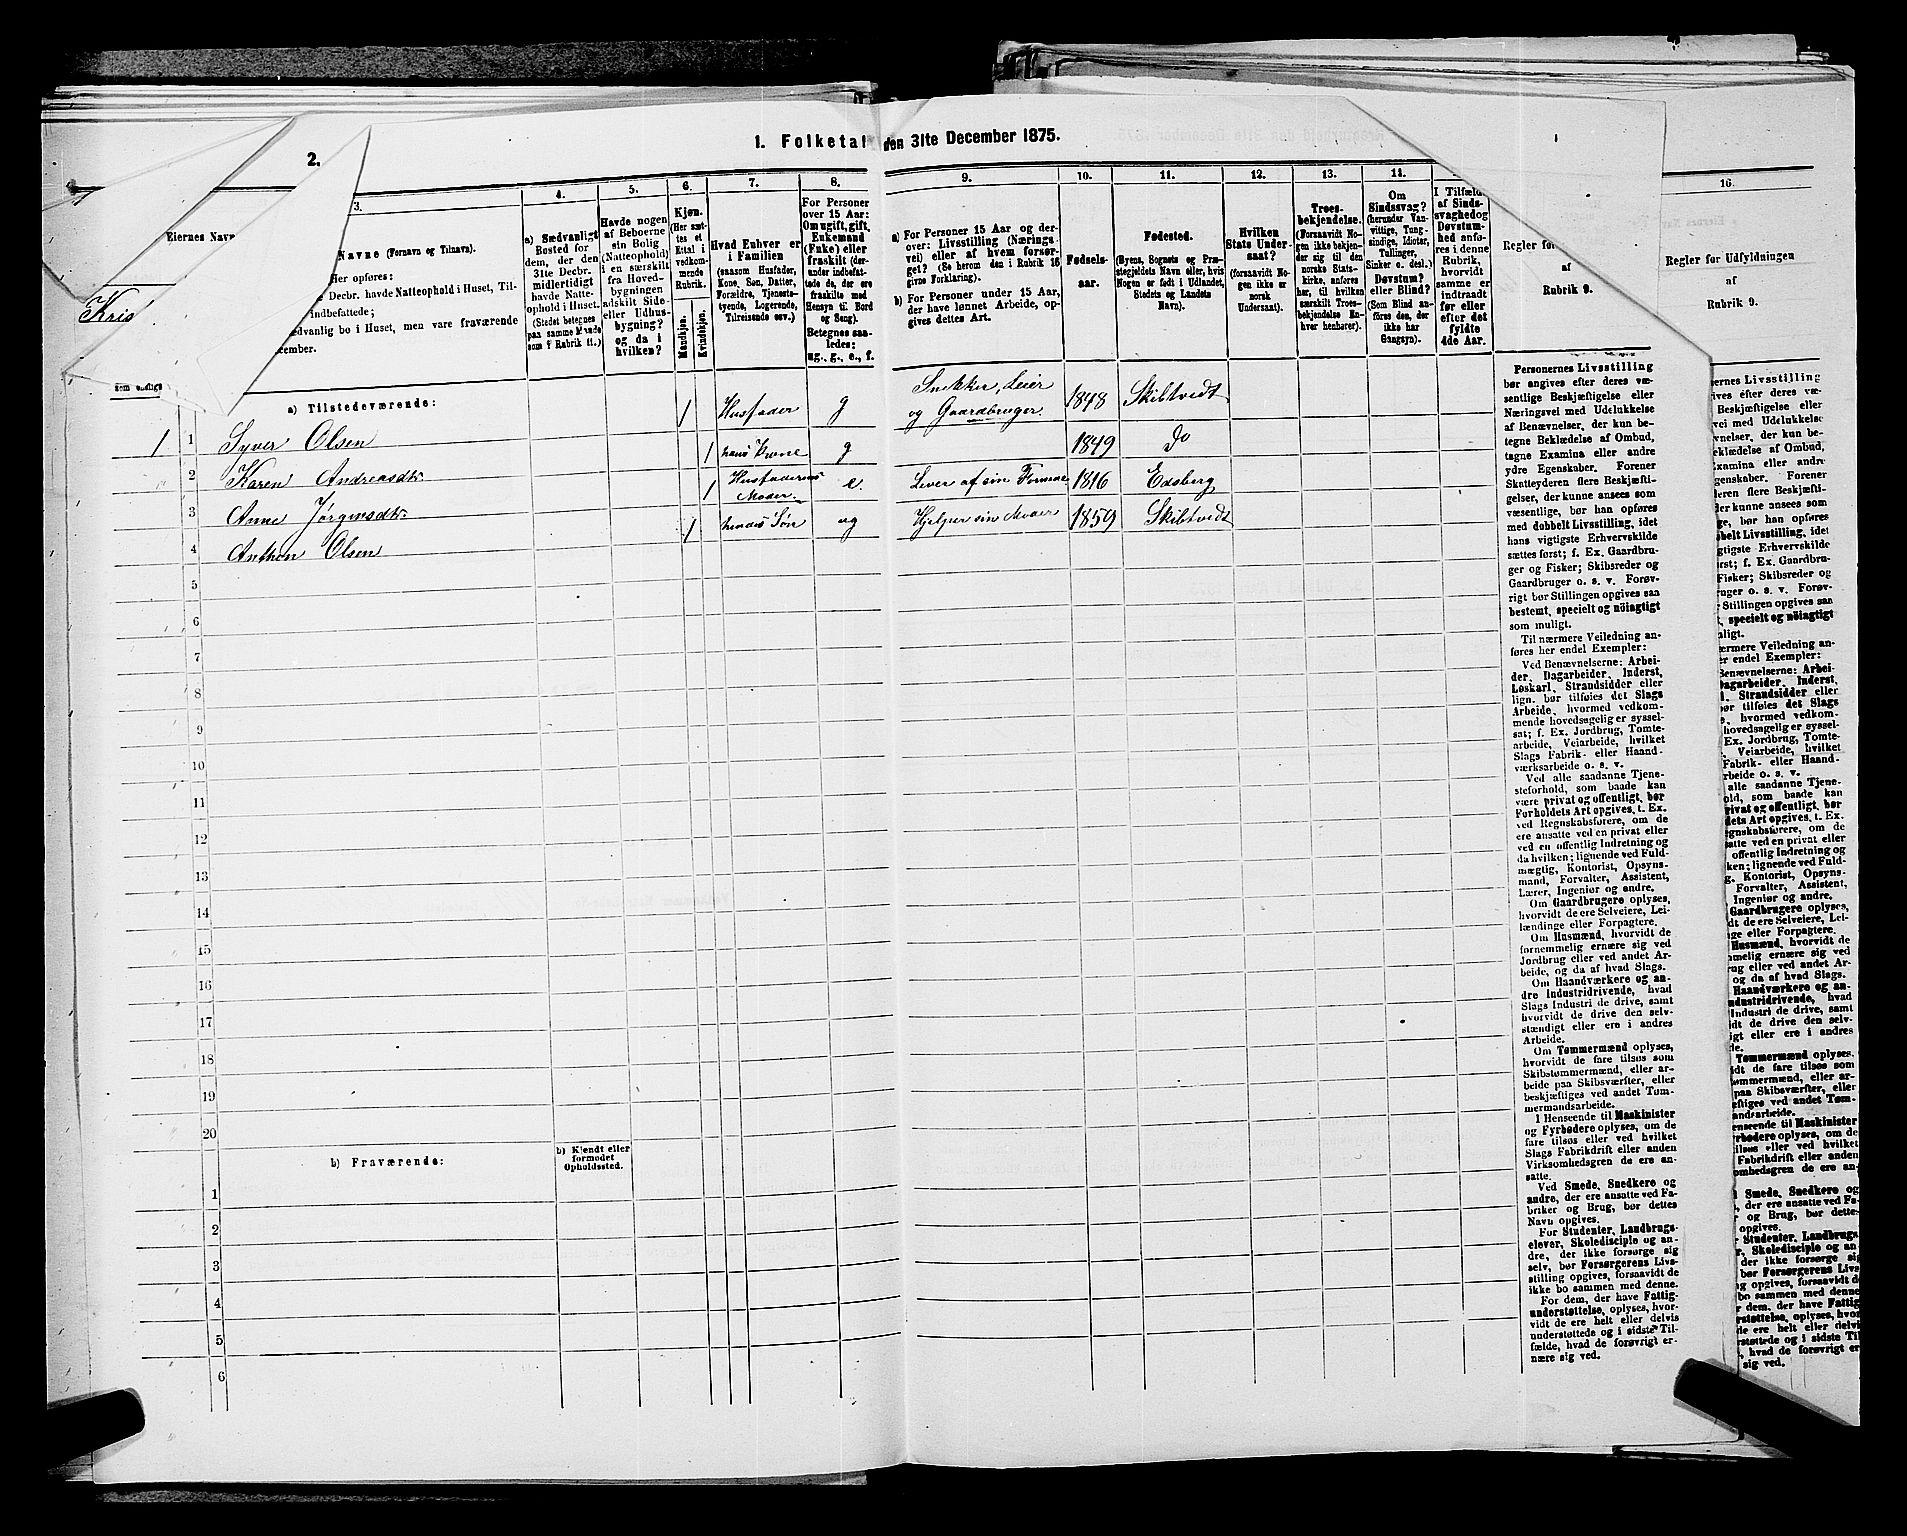 1. Folketal den 31te December 1875.
2.
3.
4.
5.
6.
7.
8.
9.
10.
11.
12.
13.
14.
16.
Eiernes Navn
Kris
Navne (Fornavn og Tilnavn).
Her opføres:
Decbr. havde Natteophold i Huset, Til-
indbefattede;
sædvanlig bo i Huset, men vare fraværende
cember.
a) Sædvanligt
Bosted for
dem, der den
31te Decbr.
midlertidigt
havde Natte-
ophold i Huset.
(Stedet betegnes
paa samme Maade
som i Rubrik 11.)
Havde nogen
af Beboerne
sin Bolig
(Natteophold)
i en særskilt
fra Hoved-
bygningen
adskilt Side-
eller Udhus-
bygning?
og da i
hvilken?
Kjøn.
(Her sæt-
tes et
Ettal i
vedkom-
mende
Rubrik.
Mandkjøn.
Kvindekjøn.
Hvad Enhver er
i Familien
(saasom Husfader,
Kone, Søn, Datter,
Forældre, Tjeneste-
tyende, Logerende,
Tilreisende osv.)
For Personer
over 15 Aar:
Om ugift, gift,
Enkemand
(Enke) eller
fraskilt (der-
under indbefat-
tede de, der ere
fraskilte med
Hensyn til Bord
og Seng).
Betegnes saa-
ledes:
ug., g., e., f.
a) For Personer 15 Aar og der-
over: Livsstilling (Nærings-
vei) eller af hvem forsør-
get? (Se herom den i Rubrik 16
givne Forklaring).
b) For Personer under 15 Aar,
der have lønnet Arbeide, op-
gives dettes Art.
Fødsels-
aar.
Fødested.
(Byens, Sognets og Præ-
stegjeldets Navn eller, hvis
Nogen er født i Udlandet,
Stedets og Landets
Navn).
Hvilken
Stats Under-
saat?
(forsaavidt No-
gen ikke er
norsk
Undersaat).
Troes-
bekjendelse.
(Forsaavidt No-
gen ikke bekjen-
der sig til den
norske Stats-
kirke, anføres
her, til hvilken
særskilt Troes-
bekjendelse En-
hver henhører).
Om
Sindssvag?
(herunder Van-
vittige, Tung-
sindige, Idioter,
Tullinger,
Sinker o. desl.)
Døvstum?
eller Blind?
(Som Blind an-
føres den, der
ikke har
Gangsyn).
I Tilfælde
af Sinds-
svaghed og
Døvstum-
hed anfø-
res i denne
Rubrik,
hvorvidt
samme er
indtraadt
før eller
efter det
fyldte
4de Aar.
Regler for
af
Rubrik 9.
Regler for Udfyldningen
af
Rubrik 9.
a) Tilstedeværende:
1 1 Syver Olsen 1 Husfader g Snekker, Leier
og Gaardbruger 1848 Skibtvedt
2 Karen Andreasdtr. 1 hans Kone g 1849 do
3 Anne Jørgensdtr. 1 Husfaderens
Moder e. Lever af sin Formue 1816 Edsberg
4 Anthon Olsen 1 hendes Søn ug Hjelper sin Moder 1859 Skibtvedt
5
6
7
8
9
10
11
12
13
14
15
16
17
18
19
20
b) Fraværende:
b) Kjendt eller
formodet
Opholdssted.
1
2
3
4
5
6
Personernes Livsstilling
bør angives efter deres væ-
sentlige Beskjæftigelse eller
Næringsvei med Udelukkelse
af Benævnelser, der kun be-
tegne Beklædelse af Ombud,
tagne Examina eller andre
ydre Egenskaber. Forener
Skatteyderen flere Beskjæfti-
gelser, der kunne ansees som
væsentlige, bør han opføres
med dobbelt Livsstilling, idet
hans vigtigste Erhvervskilde
sættes først; f. Ex. Gaardbru-
ger og Fisker; Skibsreder og
Gaardbruger o. s. v. Forøv-
rigt bør Stillingen opgives saa
bestemt, specielt og nöiagtigt
som muligt.
Til nærmere Veiledning an-
føres her endel Exempler:
Ved Benævnelserne: Arbei-
der, Dagarbeider, Inderst,
Løskarl, Strandsidder eller
lign. bør tilføies det Slags
Arbeide, hvormed vedkom-
mende hovedsagelig er syssel-
sat; f. Ex. Jordbrug, Tomte-
arbeide, Veiarbeide, hvilket
Slags Fabrik- eller Haand-
værksarbeide o. s. v.
Ved alle saadanne Tjene-
steforhold, som baade kan
være privat og offentligt, bør
Forholdets Art opgives, t. Ex.
ved Regnskabsførere, om de
ere ansatte ved en privat eller
ved en offentlig Indretning og
da hvilken; lignende ved Fuld-
mægtig, Kontorist, Opsyns-
mand, Forvalter, Assistent,
Lærer, Ingeniør og andre.
Om Gaardbrugere oplyses,
hvorvidt de ere Selveiere, Lei-
lændinge eller Forpagtere.
Om Husmænd, hvorvidt de
fornemmelig ernære sig ved
Jordbrug eller ved andet Ar-
beide, og da af hvad Slags.
Om Haandværkere og an-
dre Industridrivende, hvad
Slags Industri de drive, samt
hvorvidt de drive den selv-
stændigt eller ere i andres
Arbeide.
Om Tømmermænd oplyses,
hvorvidt de fare tilsøs som
Skibstømmermænd, eller ar-
beide paa Skibsværfter, eller
beskjæftiges ved andet Tøm-
mermandsarbeide.
I Henseende til Maskinister
og Fyrbødere oplyses, om de
fare tilsøs eller ved hvilket
Slags Fabrikdrift eller anden
Virksomhedsgren de ere an-
satte.
Ved Smede, Snedkere og
andre, der ere ansatte ved Fa-
briker og Brug, bør dettes
Navn opgives.
For Studenter, Landbrugs-
elever, Skoledisciple og an-
dre, der ikke forsørge sig
selv, bør Forsørgerens Livs-
stilling opgives, forsaavidt de
ikke bo sammen med denne.
For dem, der have Fattig-
understøttelse, oplyses, hvor-
vidt de ere helt eller delvis
understøttede og i sidste Til-
fælde, hvad de forøvrigt er-
nære sig ved.